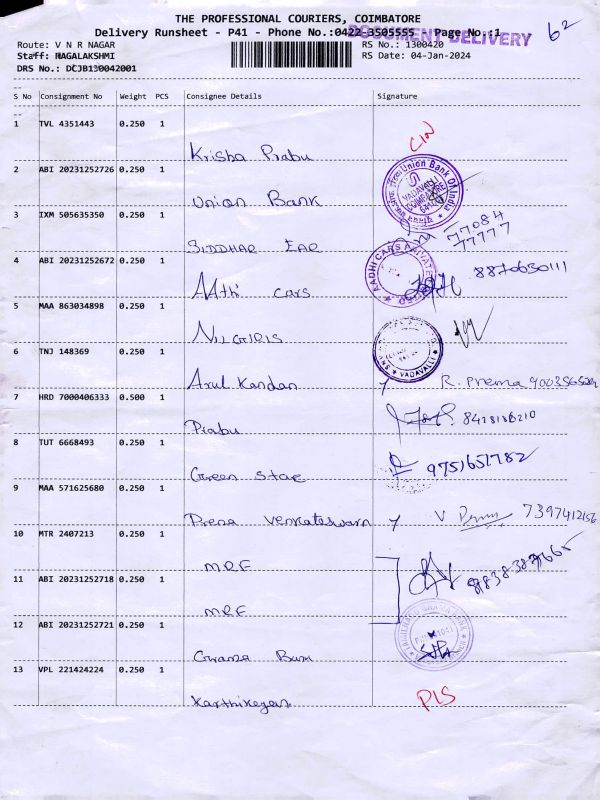 THE PROFESSIONAL COURIERS, COIMBATORE
Delivery Runsheet - P41 - Phone No.:0422-3505555 - Page No.:1
DOCUMENT DELIVERY
62
Route: V N R NAGAR
RS No.: 1300420
Staff: NAGALAKSHMI
RS Date: 04-Jan-2024
DRS No.: DCJB130042001
S No Consignment No Weight PCS Consignee Details Signature
1 TVL 4351443 0.250 1
Krisha Prabu
2 ABI 20231252726 0.250 1
Union Bank
Union Bank Of India
VADAVALLI
COIMBATORE
3 IXM 505635350 0.250 1
SIDDHAR EAR
77084
77777
4 ABI 20231252672 0.250 1
AAthi cars
8870650111
5 MAA 863034898 0.250 1
NILGIRIS
VADAVALLI
6 TNJ 148369 0.250 1
Arul Kandan
R. Prema
7 HRD 7000406333 0.500 1
Prabu
8 TUT 6668493 0.250 1
Green Star
9751651782
9 MAA 571625680 0.250 1
Prena Venkateswarn
V
7397412156
10 MTR 2407213 0.250 1
MRF
11 ABI 20231252718 0.250 1
MRF
12 ABI 20231252721 0.250 1
13 VPL 221424224 0.250 1
Karthikeyan
PLS